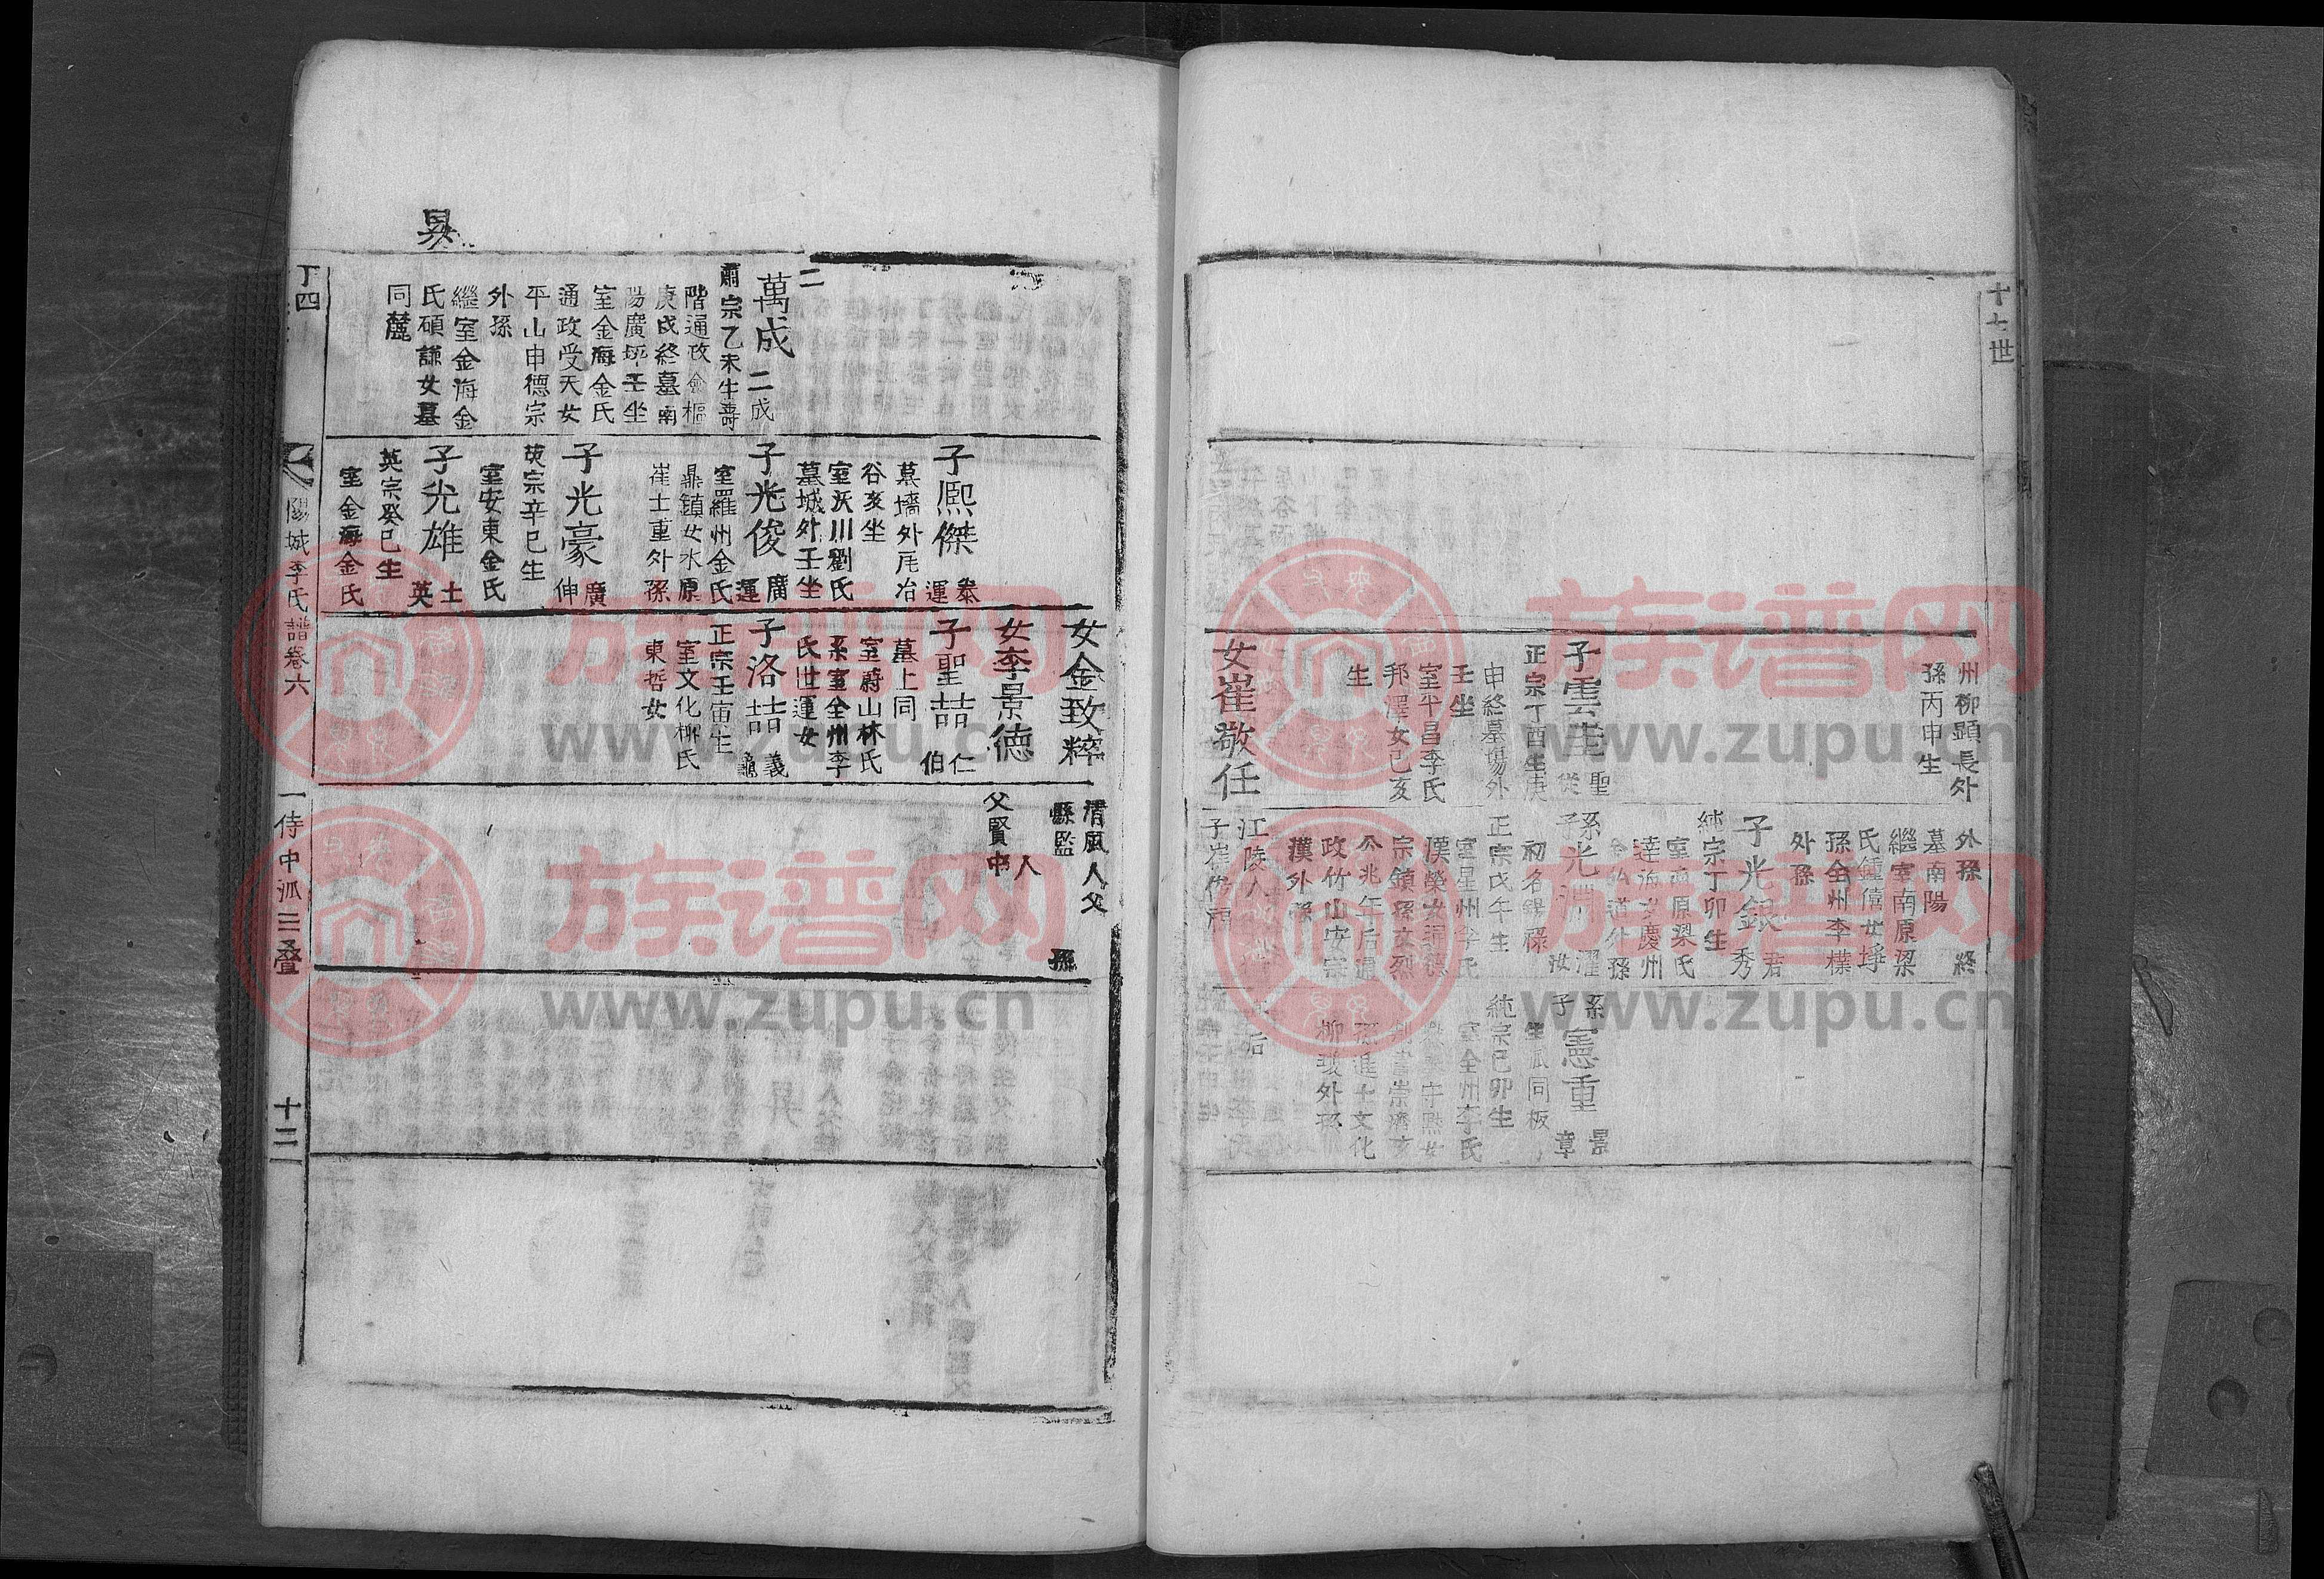 十七世
州柳顯長外
孫丙申生
子雲
聖
從
正宗丁酉生庚
申終墓場外
壬坐
室平昌李氏
邦澤女己亥
生
女崔敬任
外孫 終
墓南陽
繼室南原梁
氏鍾僖女埩
孫全州李樸
外孫
子光銀
君
秀
純宗丁卯生
室南原梁氏
達海女慶州
道外孫
系子光洲
濯
汝
初名錫祿
正宗戊午生
室星州李氏
漢榮女洞德
宗鎮孫文烈
公兆年后通
政竹山安宗
漢外孫
江陵人
子崔
后
系子憲重
景
章
生派同板
純宗己卯生
室全州李氏
守熙女
崇濟玄
孫進士文化
柳玹外孫
昊
二
萬成 二成
肅宗乙未生壽
階通政僉樞
庚戌終墓南
陽廣坪壬坐
室金海金氏
通政受天女
平山申德宗
外孫
繼室金海金
氏碩謙女墓
同麓
子熙傑
泰
運
墓墻外尾冶
谷亥坐
室沃川劉氏
墓城外壬坐
子光俊
廣
運
室羅州金氏
鼎鎮女水原
崔士重外孫
子光豪
廣
伸
英宗辛巳生
室安東金氏
子光雄
士
英
英宗癸巳生
室金海金氏
女金致粹
女李景德
子聖喆
仁
伯
墓上同
室蔚山林氏
系室全州李
氏世運女
子洛喆
義
龜
正宗壬寅生
室文化柳氏
東哲女
清風人父
縣監 孫
人
父賢中
丁四
陽城李氏譜卷六
一侍中派三叠
十二
族谱网
www.zupu.cn
族谱网
www.zupu.cn
族谱网
www.zupu.cn
族谱网
www.zupu.cn